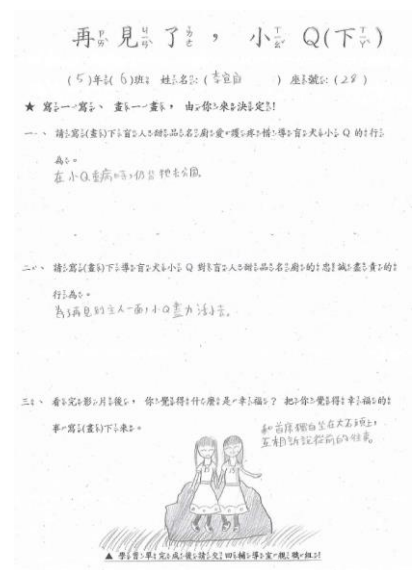 再見了，小Q(下)
(5)年(6)班 姓名：( ) 座號：(28)
★ 寫一寫、畫一畫，由你來決定！
一、 請寫(畫)下盲人甜品名廚愛護疼惜導盲犬小Q的行
為。
在小Q重病時，仍
二、 請寫(畫)下導盲犬小Q對盲人甜品名廚的忠誠盡責的
行為。
為了再見到主人一面，小Q盡力活下去。
三、 看完影片後，你覺得什麼是幸福？把你覺得幸福的
事寫(畫)下來。
和 坐在大石頭上，
互相訴說從前的往事。
▲ 學習單完成後請交回輔導室親職組！